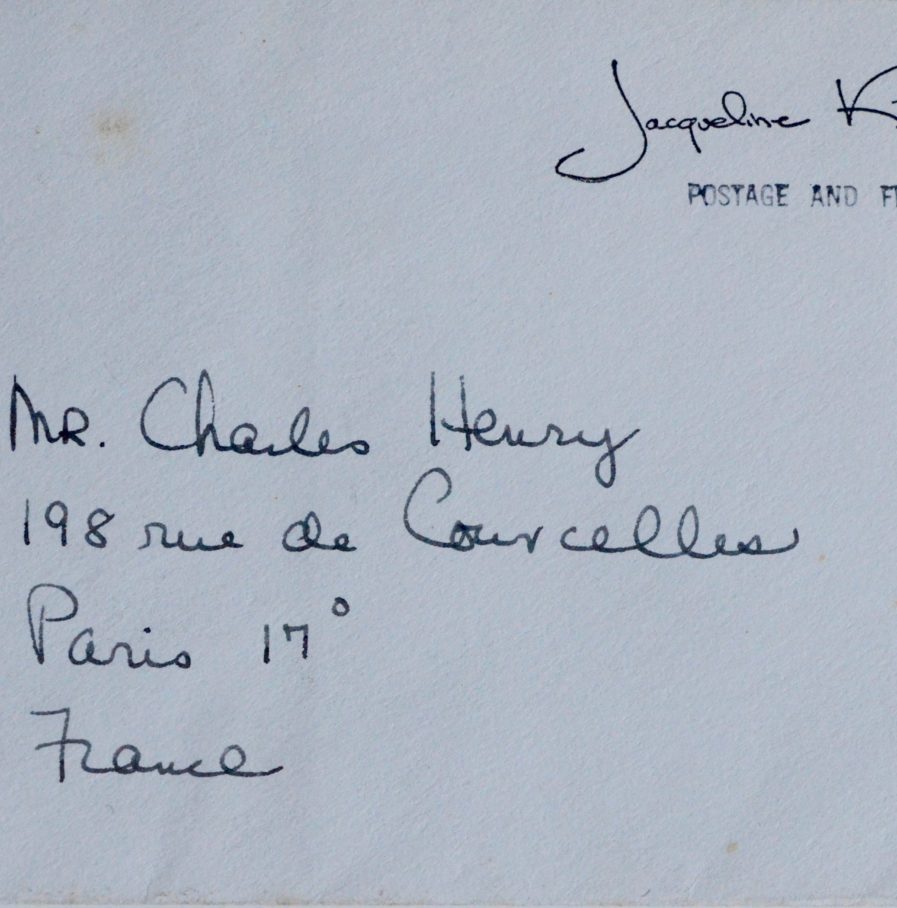 Jacqueline K
POSTAGE AND F
Mr. Charles Henry
198 rue de Courcelles
Paris 17°
France